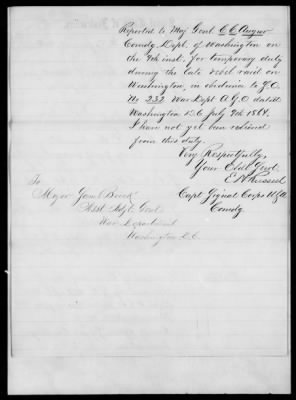 Reported to Maj Genl. C C Augur
Comdg. Dept. of Washington on
the 9th inst. for temporary duty
during the late rebel raid on
Washington, in obedience to S.O.
No 232 War Dept A.G.O dated
Washington D.C July 9th 1864.
I have not yet been relieved
from this duty.
Very Respectfully,
Your Obdt Servt.
Capt Signal Corps U.S.A
Comdg.
To
Major
Asst Adjt Genl.
War Department
Washington D.C.